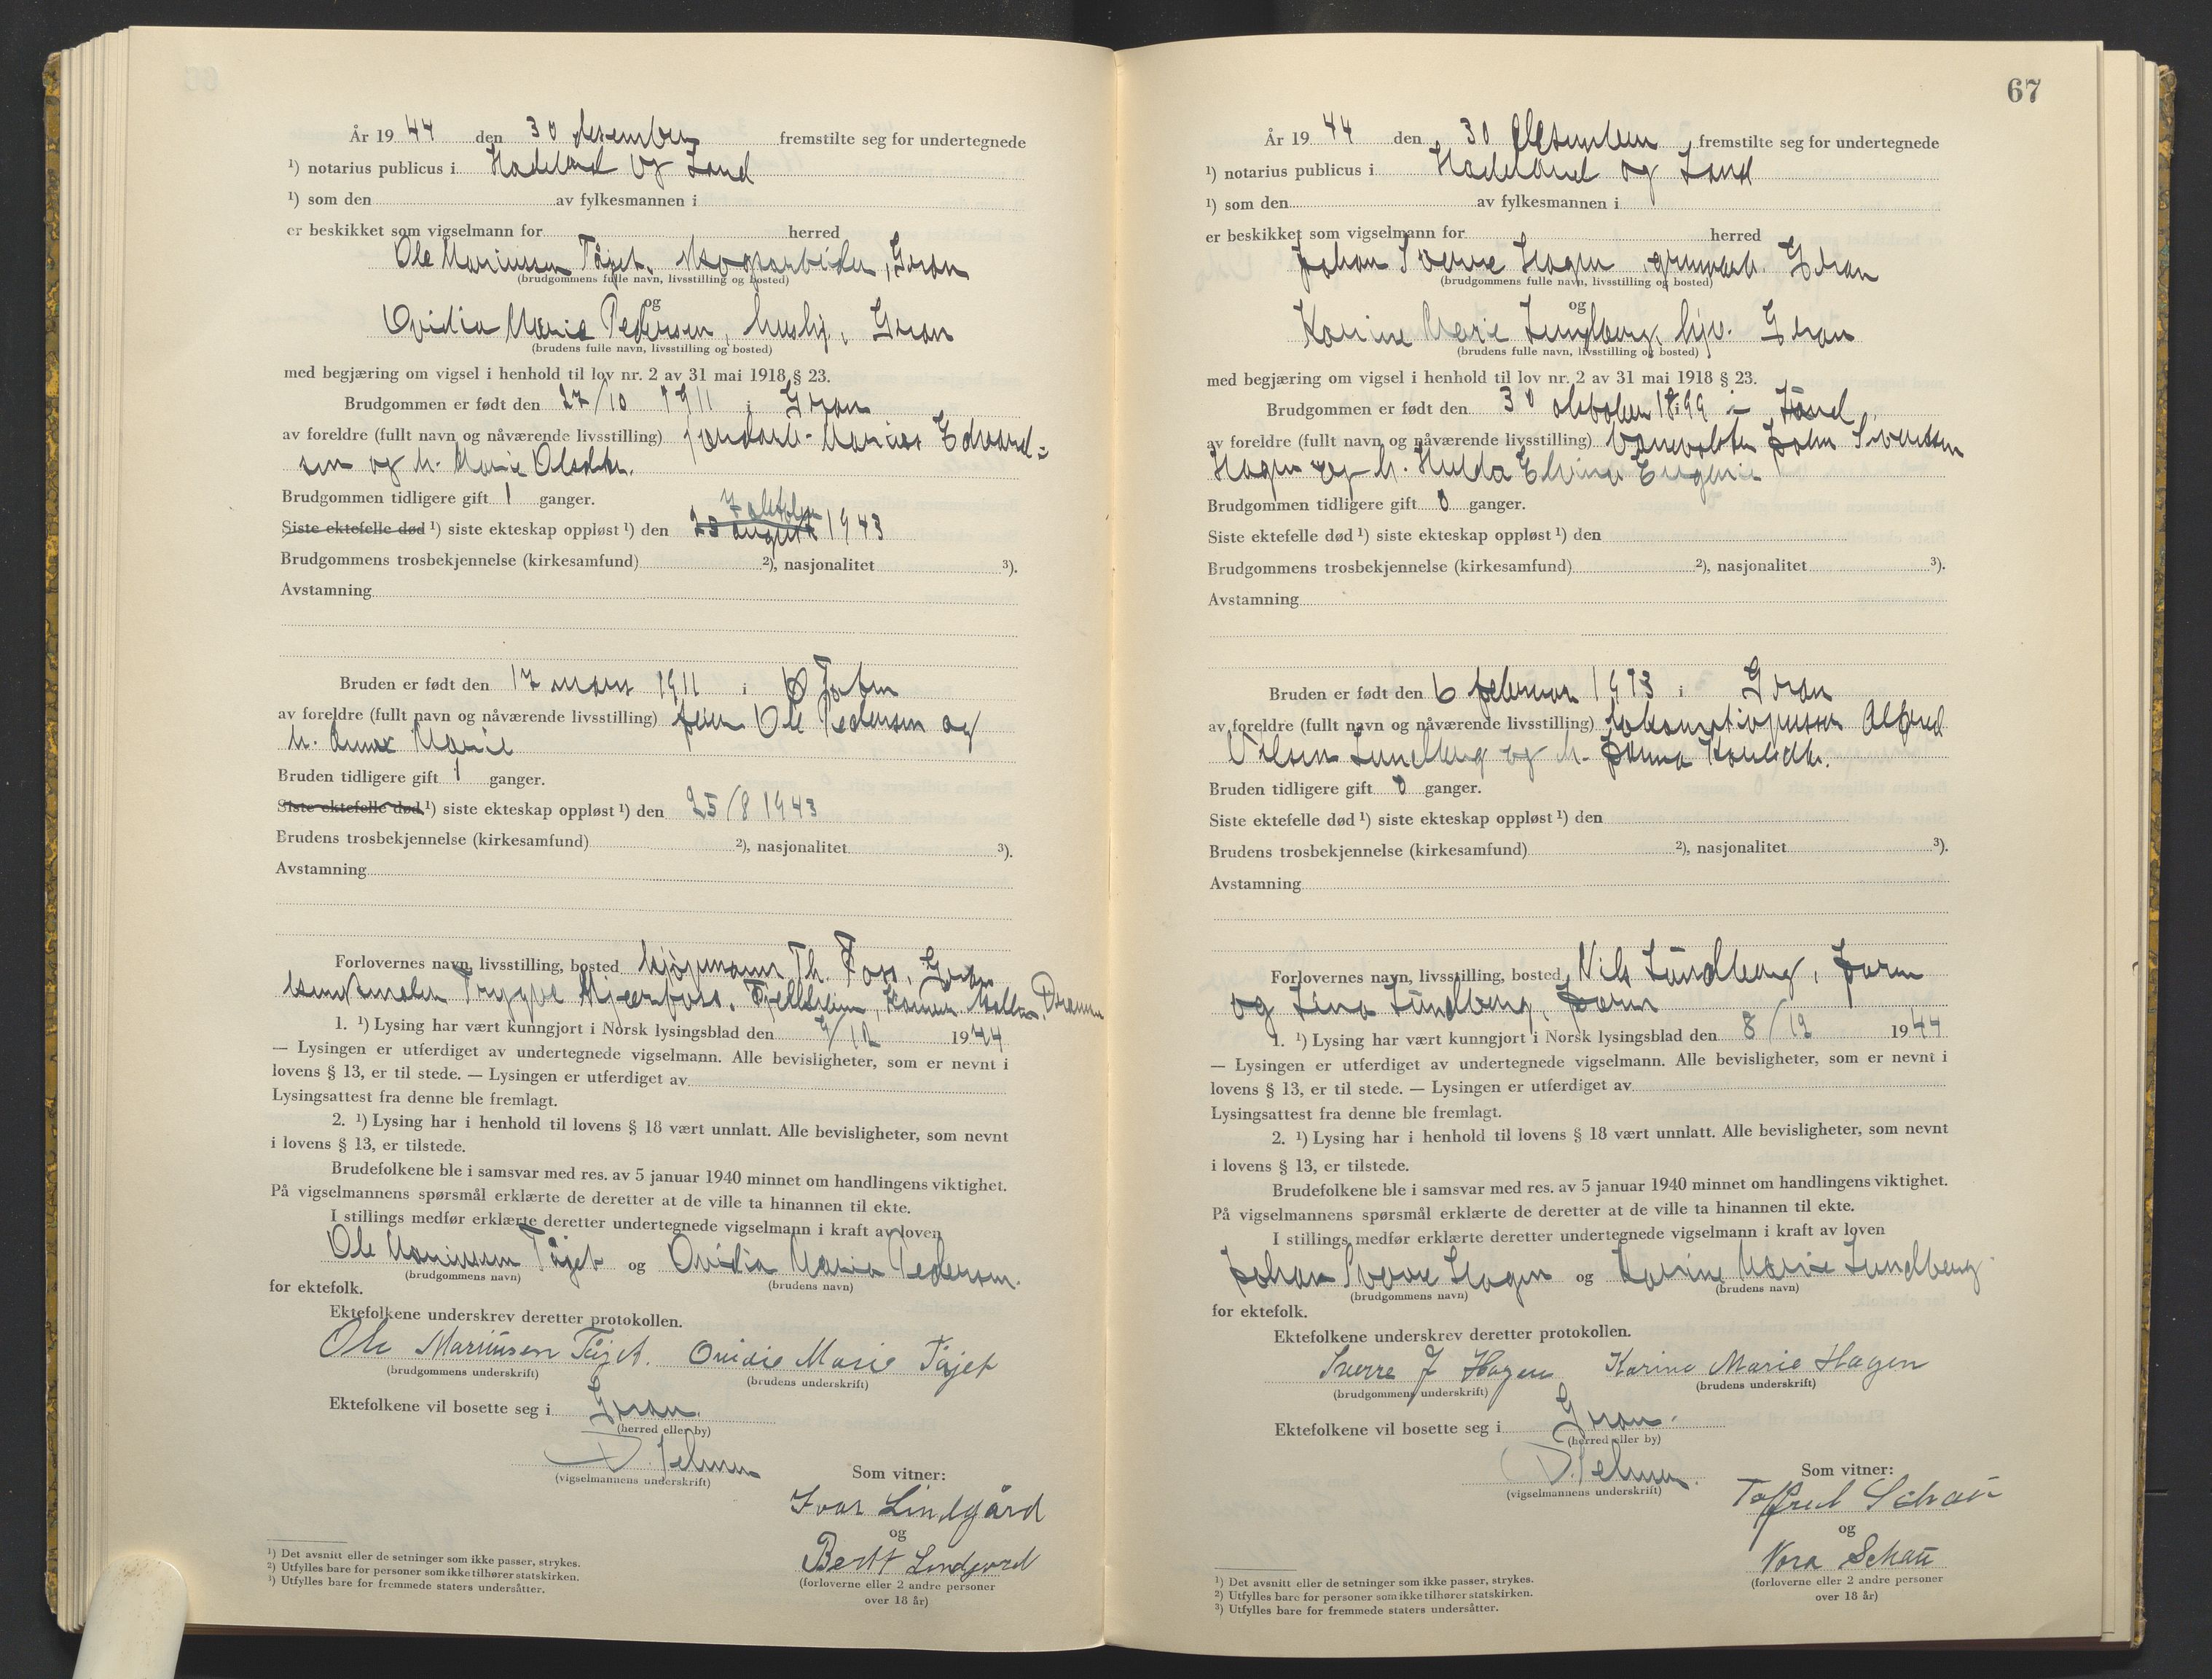 År 19 44 den 30 desember fremstilte seg for undertegnede
¹) notarius publicus i Hadeland og Land
¹) som den av fylkesmannen i
er beskikket som vigselmann for herred
Ole Mariussen Tåjet, skogsarbeider, Gran
(brudgommens fulle navn, livsstilling og bosted)
og
Ovidia Marie Pedersen, hushj., Gran
(brudens fulle navn, livsstilling og bosted)
med begjæring om vigsel i henhold til lov nr. 2 av 31 mai 1918 § 23.
Brudgommen er født den 27/10 1911 i Gran
av foreldre (fullt navn og nåværende livsstilling) Marius Edvard-
sen og h. Marie Olsdtr.
Brudgommen tidligere gift 1 ganger.
7 oktober
Siste ektefelle død ¹) siste ekteskap oppløst ¹) den 25 august 1943
Brudgommens trosbekjennelse (kirkesamfund) ²), nasjonalitet ³).
Avstamning
Bruden er født den 17 mars 1911 i Ø Toten
av foreldre (fullt navn og nåværende livsstilling) Ole Pedersen og
h. Anna Marie
Bruden tidligere gift 1 ganger.
Siste ektefelle død ¹) siste ekteskap oppløst ¹) den 25/8 1943
Brudens trosbekjennelse (kirkesamfund) ²), nasjonalitet ³).
Avstamning
Forlovernes navn, livsstilling, bosted kjøpmann Th. Foss, Gran
Trygve Fjellheim,
1. ¹) Lysing har vært kunngjort i Norsk lysingsblad den /12 1944
— Lysingen er utferdiget av undertegnede vigselmann. Alle bevisligheter, som er nevnt i
lovens § 13, er til stede. — Lysingen er utferdiget av
Lysingsattest fra denne ble fremlagt.
2. ¹) Lysing har i henhold til lovens § 18 vært unnlatt. Alle bevisligheter, som nevnt
i lovens § 13, er tilstede.
Brudefolkene ble i samsvar med res. av 5 januar 1940 minnet om handlingens viktighet.
På vigselmannens spørsmål erklærte de deretter at de ville ta hinannen til ekte.
I stillings medfør erklærte deretter undertegnede vigselmann i kraft av loven
Ole Mariussen Tåjet og Ovidia Marie Pedersen
(brudgommens navn) (brudens navn)
for ektefolk.
Ektefolkene underskrev deretter protokollen.
Ole Mariussen Tåjet. Ovidie Marie Tåjet
(brudgommens underskrift) (brudens underskrift)
Ektefolkene vil bosette seg i Gran.
(herred eller by)
(vigselmannens underskrift)
Som vitner:
Ivar Lindgård
og
Berit Lindgård
(forloverne eller 2 andre personer
over 18 år)
¹) Det avsnitt eller de setninger som ikke passer, strykes.
²) Utfylles bare for personer som ikke tilhører statskirken.
³) Utfylles bare for fremmede staters undersåtter.
67
År 19 44 den 30 desember fremstilte seg for undertegnede
¹) notarius publicus i Hadeland og Land
¹) som den av fylkesmannen i
er beskikket som vigselmann for herred
Johan Sverre Hagen, gruvearb. Gran
(brudgommens fulle navn, livsstilling og bosted)
og
Karine Marie Lundberg, hjv. Gran
(brudens fulle navn, livsstilling og bosted)
med begjæring om vigsel i henhold til lov nr. 2 av 31 mai 1918 § 23.
Brudgommen er født den 30 oktober 1899 i Land
av foreldre (fullt navn og nåværende livsstilling) banevokter John Sivertsen
Hagen og h. Hulda Elvine Eugenie
Brudgommen tidligere gift 0 ganger.
Siste ektefelle død ¹) siste ekteskap oppløst ¹) den
Brudgommens trosbekjennelse (kirkesamfund) ²), nasjonalitet ³).
Avstamning
Bruden er født den 6 februar 1913 i Gran
av foreldre (fullt navn og nåværende livsstilling) lokomotivpusser Alfred
Nilsen Lundberg og h. Janna Karlsdtr.
Bruden tidligere gift 0 ganger.
Siste ektefelle død ¹) siste ekteskap oppløst ¹) den
Brudens trosbekjennelse (kirkesamfund) ²), nasjonalitet ³).
Avstamning
Forlovernes navn, livsstilling, bosted Nils Lundberg, Jaren
og Lina Lundberg, Jaren
1. ¹) Lysing har vært kunngjort i Norsk lysingsblad den 8/12 1944
— Lysingen er utferdiget av undertegnede vigselmann. Alle bevisligheter, som er nevnt i
lovens § 13, er til stede. — Lysingen er utferdiget av
Lysingsattest fra denne ble fremlagt.
2. ¹) Lysing har i henhold til lovens § 18 vært unnlatt. Alle bevisligheter, som nevnt
i lovens § 13, er tilstede.
Brudefolkene ble i samsvar med res. av 5 januar 1940 minnet om handlingens viktighet.
På vigselmannens spørsmål erklærte de deretter at de ville ta hinannen til ekte.
I stillings medfør erklærte deretter undertegnede vigselmann i kraft av loven
Johan Sverre Hagen og Karine Marie Lundberg
(brudgommens navn) (brudens navn)
for ektefolk.
Ektefolkene underskrev deretter protokollen.
Sverre J Hagen Karine Marie Hagen
(brudgommens underskrift) (brudens underskrift)
Ektefolkene vil bosette seg i Gran.
(herred eller by)
(vigselmannens underskrift)
Som vitner:
Schau
og
Nora Schau
(forloverne eller 2 andre personer
over 18 år)
¹) Det avsnitt eller de setninger som ikke passer, strykes.
²) Utfylles bare for personer som ikke tilhører statskirken.
³) Utfylles bare for fremmede staters undersåtter.